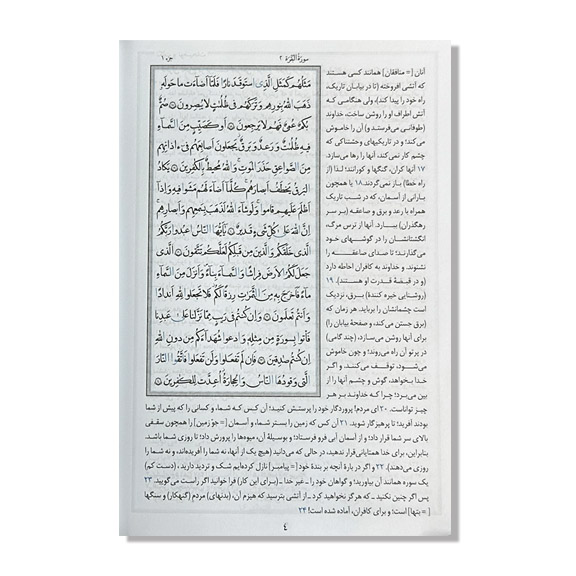 سورة البقرة ٢
جزء ١
مَثَلُهُمْ كَمَثَلِ الَّذِي اسْتَوْقَدَ نَارًا فَلَمَّا أَضَاءَتْ مَا حَوْلَهُ
ذَهَبَ اللَّهُ بِنُورِهِمْ وَتَرَكَهُمْ فِي ظُلُمَاتٍ لَا يُبْصِرُونَ ۝
بُكْمٌ عُمْيٌ فَهُمْ لَا يَرْجِعُونَ ۝ أَوْ كَصَيِّبٍ مِنَ السَّمَاءِ
فِيهِ ظُلُمَاتٌ وَرَعْدٌ وَبَرْقٌ يَجْعَلُونَ أَصَابِعَهُمْ فِي آذَانِهِمْ
مِنَ الصَّوَاعِقِ حَذَرَ الْمَوْتِ وَاللَّهُ مُحِيطٌ بِالْكَافِرِينَ ۝ يَكَادُ
الْبَرْقُ يَخْطَفُ أَبْصَارَهُمْ كُلَّمَا أَضَاءَ لَهُمْ مَشَوْا فِيهِ وَإِذَا
أَظْلَمَ عَلَيْهِمْ قَامُوا وَلَوْ شَاءَ اللَّهُ لَذَهَبَ بِسَمْعِهِمْ وَأَبْصَارِهِمْ
إِنَّ اللَّهَ عَلَى كُلِّ شَيْءٍ قَدِيرٌ ۝ يَا أَيُّهَا النَّاسُ اعْبُدُوا رَبَّكُمُ
الَّذِي خَلَقَكُمْ وَالَّذِينَ مِنْ قَبْلِكُمْ لَعَلَّكُمْ تَتَّقُونَ ۝ الَّذِي
جَعَلَ لَكُمُ الْأَرْضَ فِرَاشًا وَالسَّمَاءَ بِنَاءً وَأَنْزَلَ مِنَ السَّمَاءِ
مَاءً فَأَخْرَجَ بِهِ مِنَ الثَّمَرَاتِ رِزْقًا لَكُمْ فَلَا تَجْعَلُوا لِلَّهِ أَنْدَادًا
وَأَنْتُمْ تَعْلَمُونَ ۝ وَإِنْ كُنْتُمْ فِي رَيْبٍ مِمَّا نَزَّلْنَا عَلَى عَبْدِنَا
فَأْتُوا بِسُورَةٍ مِنْ مِثْلِهِ وَادْعُوا شُهَدَاءَكُمْ مِنْ دُونِ اللَّهِ
إِنْ كُنْتُمْ صَادِقِينَ ۝ فَإِنْ لَمْ تَفْعَلُوا وَلَنْ تَفْعَلُوا فَاتَّقُوا النَّارَ
الَّتِي وَقُودُهَا النَّاسُ وَالْحِجَارَةُ أُعِدَّتْ لِلْكَافِرِينَ ۝
آنان [= منافقان] همانند کسی هستند
که آتشی افروخته (تا در بیابان تاریک،
راه خود را پیدا کند)، ولی هنگامی که
آتش اطراف او را روشن ساخت، خداوند
(طوفانی می‌فرستد و) آن را خاموش
می‌کند؛ و در تاریکیهای وحشتناکی که
چشم کار نمی‌کند، آنها را رها می‌سازد.
۱۷ آنها کران، گنگها و کورانند؛ لذا (از
راه خطا) باز نمی‌گردند. ۱۸ یا همچون
بارانی از آسمان، که در شب تاریک
همراه با رعد و برق و صاعقه (بر سر
رهگذران) ببارد. آنها از ترس مرگ،
انگشتانشان را در گوشهای خود
می‌گذارند؛ تا صدای صاعقه را
نشنوند. و خداوند به کافران احاطه دارد
(و در قبضهٔ قدرت او هستند). ۱۹
(روشنایی خیره کنندهٔ) برق، نزدیک
است چشمانشان را برباید. هر زمان که
(برق جستن می‌کند، و صفحهٔ بیابان را)
برای آنها روشن می‌سازد، (چند گامی)
در پرتو آن راه می‌روند؛ و چون خاموش
می‌شود، توقف می‌کنند. و اگر
خدا بخواهد، گوش و چشم آنها را از
بین می‌برد؛ چرا که خداوند بر هر
چیز تواناست. ۲۰ ای مردم! پروردگار خود را پرستش کنید؛ آن کس که شما، و کسانی را که پیش از شما
بودند آفرید؛ تا پرهیزگار شوید. ۲۱ آن کس که زمین را بستر شما، و آسمان [= جوّ زمین] را همچون سقفی
بالای سر شما قرار داد؛ و از آسمان آبی فرو فرستاد؛ و بوسیلهٔ آن، میوه‌ها را پرورش داد؛ تا روزی شما باشد.
بنابراین، برای خدا همتایانی قرار ندهید، در حالی که می‌دانید (هیچ یک از آنها، نه شما را آفریده‌اند، و نه شما را
روزی می‌دهند). ۲۲ و اگر در بارهٔ آنچه بر بندهٔ خود [= پیامبر] نازل کرده‌ایم شک و تردید دارید، (دست کم)
یک سوره همانند آن بیاورید؛ و گواهان خود را - غیر خدا - (برای این کار) فرا خوانید اگر راست می‌گویید. ۲۳
پس اگر چنین نکنید - که هرگز نخواهید کرد - از آتشی بترسید که هیزم آن، بدنهای) مردم (گنهکار) و سنگها
[= بتها] است؛ و برای کافران، آماده شده است! ۲۴
٤